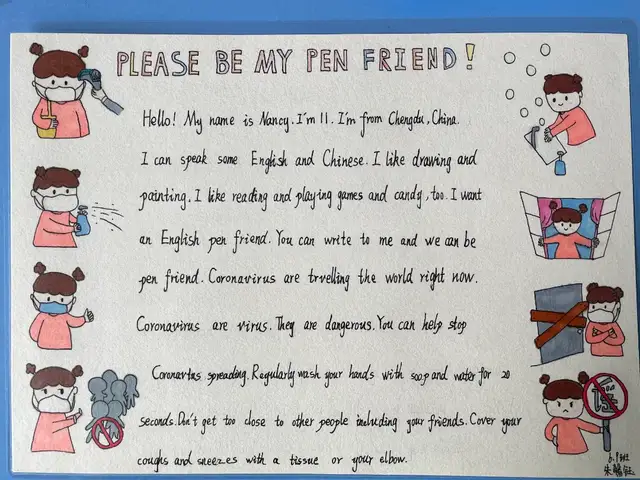 PLEASE BE MY PEN FRIEND!
Hello! My name is Nancy. I'm 11. I'm from Chengdu, China.
I can speak some English and Chinese. I like drawing and
painting. I like reading and playing games and candy, too. I want
an English pen friend. You can write to me and we can be
pen friend. Coronavirus are trvelling the world right now.
Coronavirus are virus. They are dangerous. You can help stop
Coronavirus spreading. Regularly wash your hands with soap and water for 20
seconds. Don't get too close to other people including your friends. Cover your
coughs and sneezes with a tissue or your elbow.